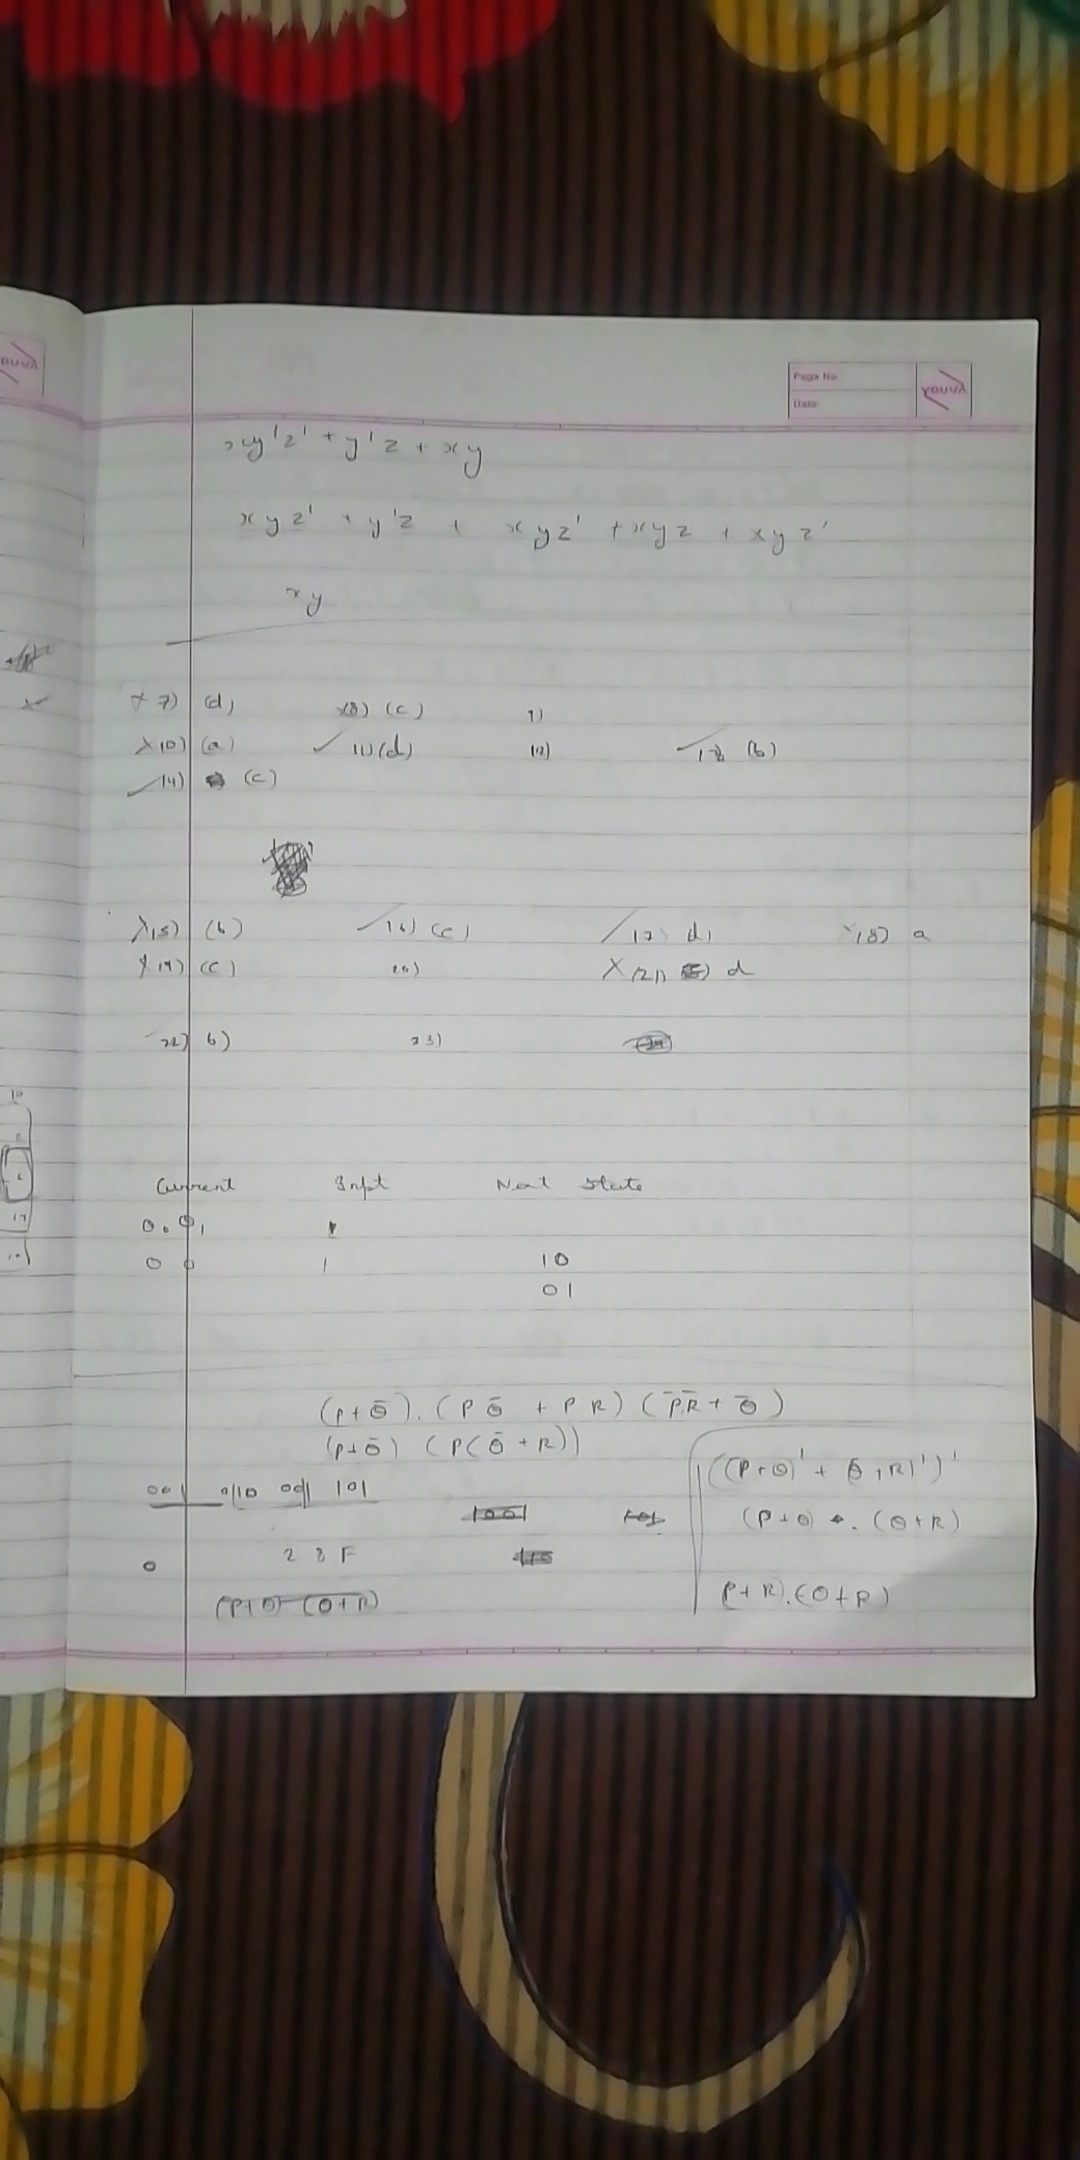 YOUVA
Page No
Date
YOUVA
xy'z' + y'z + xy
xyz' + y'z + xyz' + xyz + xyz'
xy
x 7) (d) x8) (c) 9)
x10) (a) ✓ 11) (d) 12) ✓ 13 (b)
✓ 14) (c)
x15) (b) ✓ 16) (c) ✓ 17) d) x18) a
x 19) (c) 20) X (21) d
22) b) 23)
Current Inpt Next State
0 0 1 10
01
(P+Q̄).(PQ̄ + PR)(P̄.R̄ + Q̄)
(P+Q̄) (P(Q̄+R))
((P+Q)' + (Q+R)')'
001 0110 0011 101
(P+Q) . (Q+R)
0 2 3 F
(P+Q) (Q+R)
P+R).(Q+R)